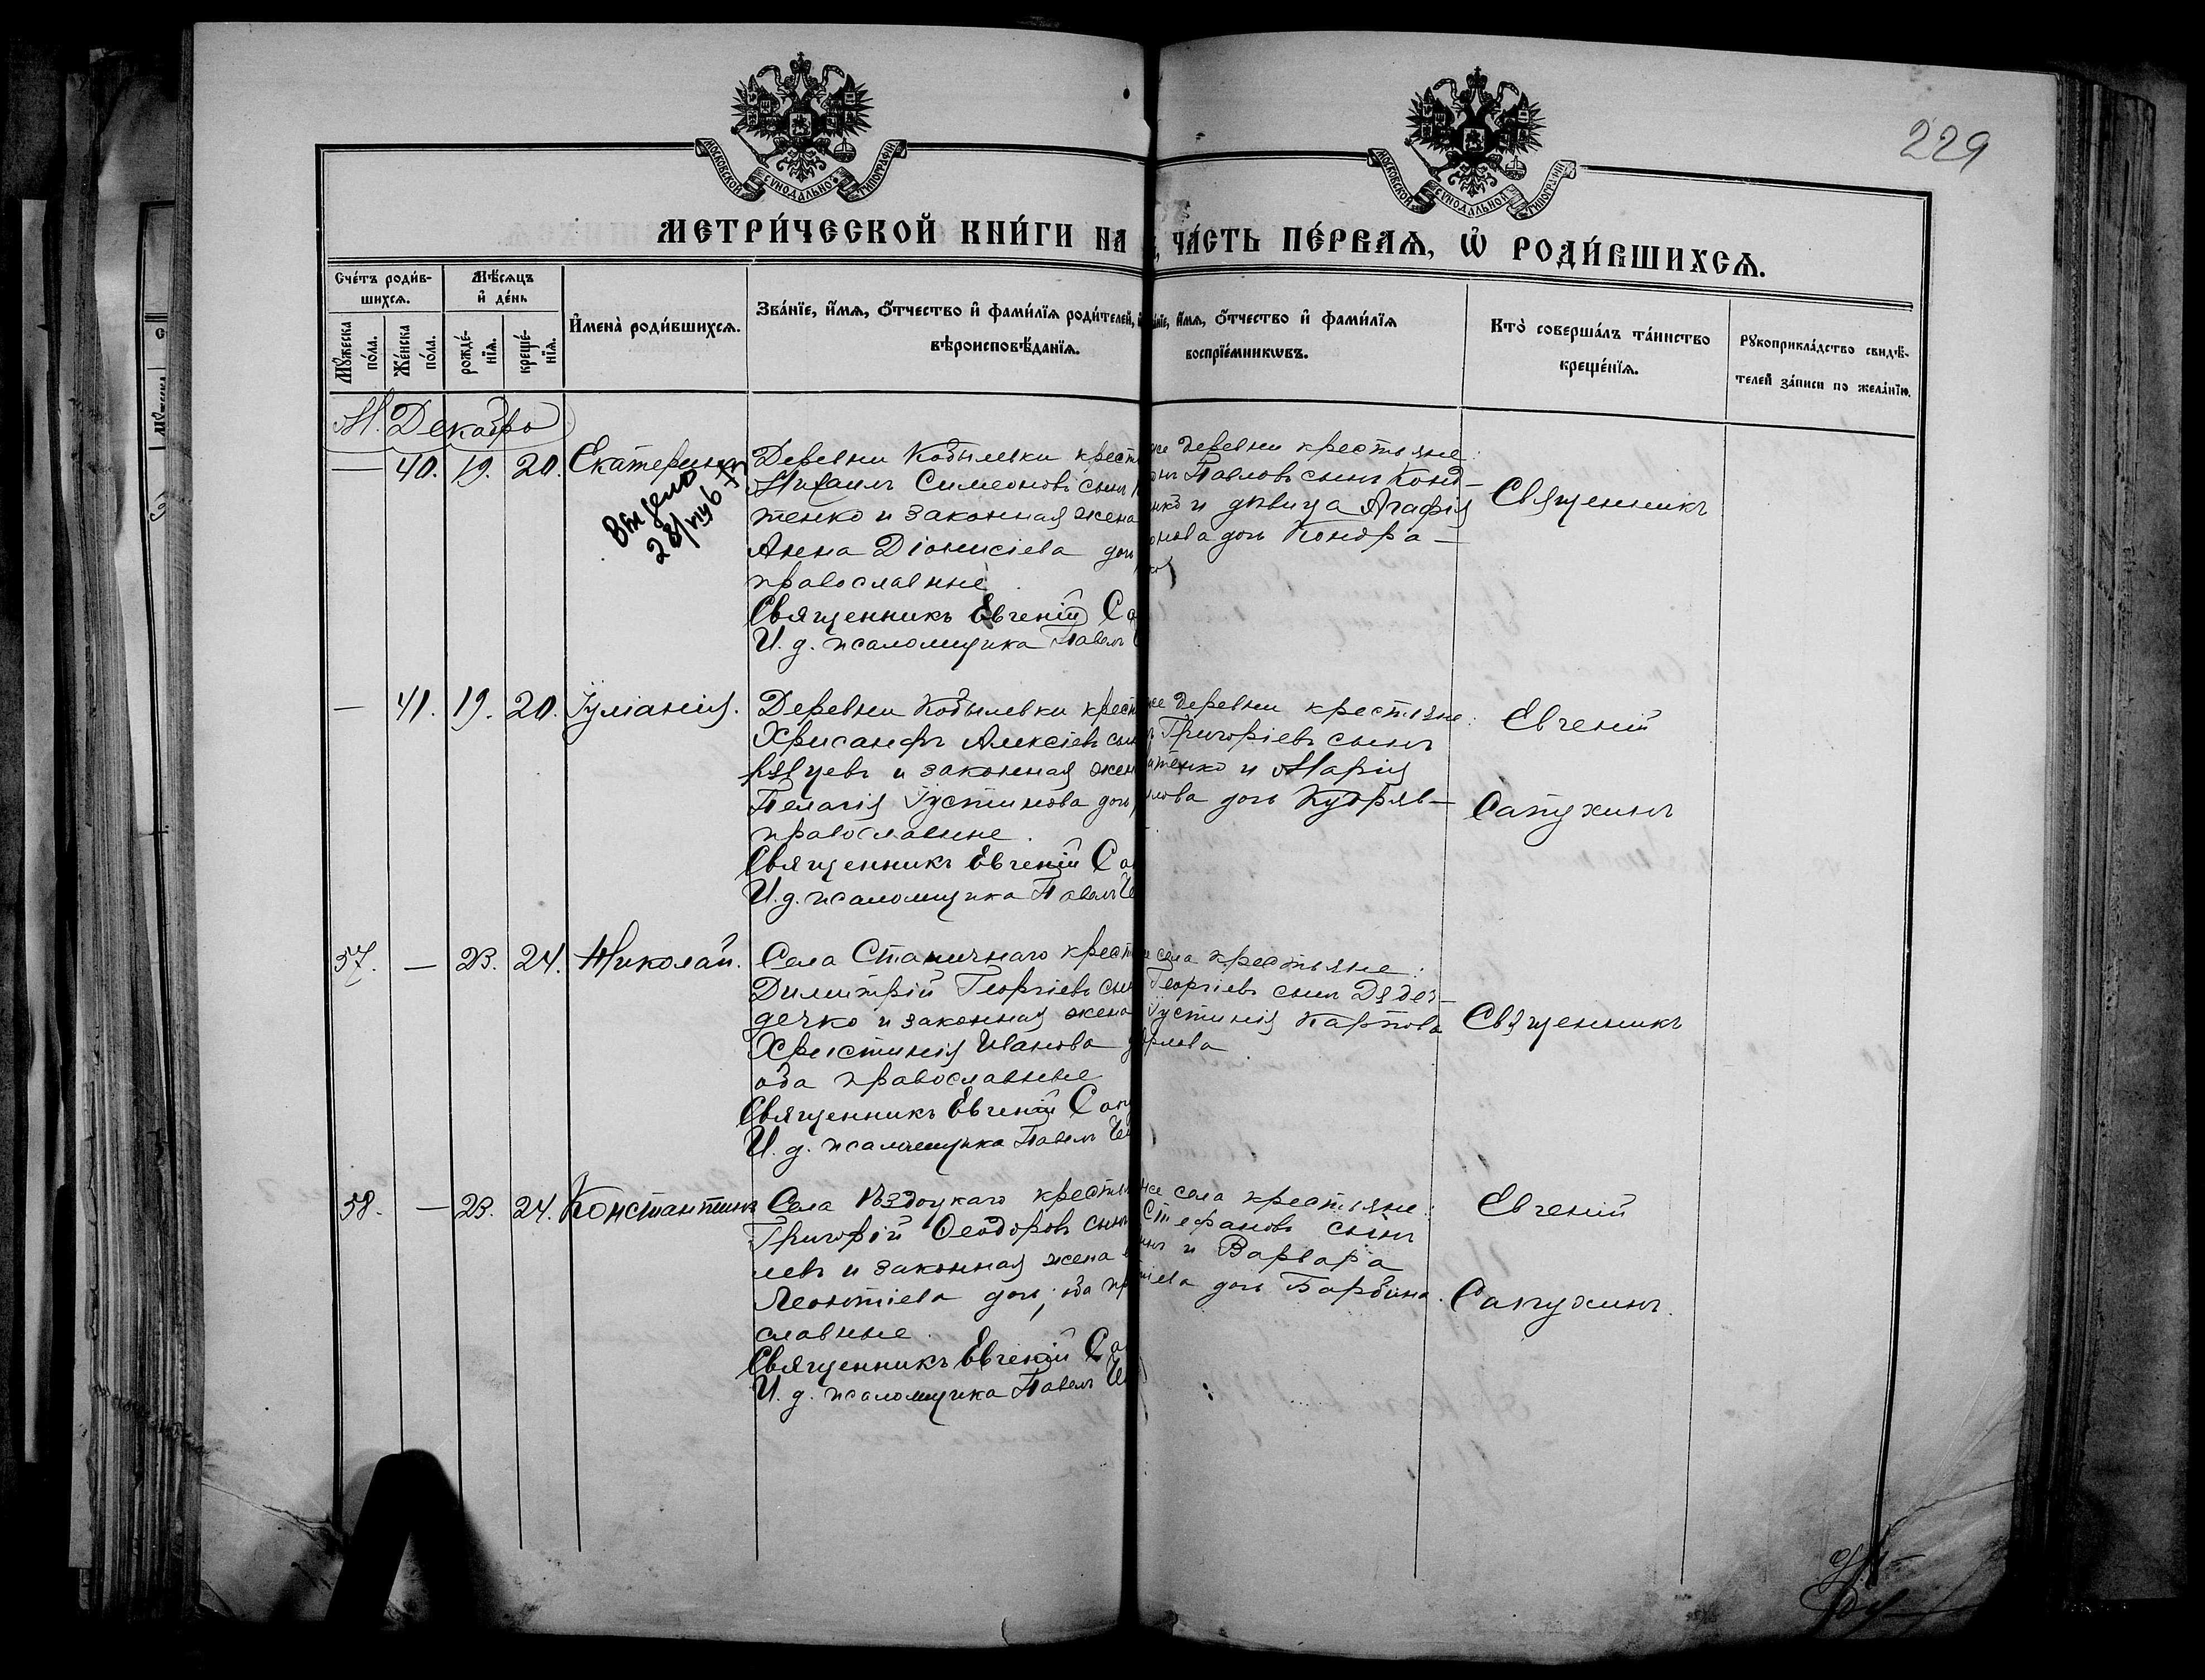 229
МОСКОВСКОЙ СѴНОДАЛЬНОЙ ТИПОГРАФІИ
МОСКОВСКОЙ СѴНОДАЛЬНОЙ ТИПОГРАФІИ
МЕТРИ́ЧЕСКОЙ КНИ́ГИ НА
ЧА́СТЬ ПЕ́РВАѦ, Ѽ РОДИ́ВШИХСѦ.
Сче́тъ роди́в-
шихсѧ.
Мꙋжеска по́ла.
Же́нска по́ла.
Мѣ́сѧцъ
и҆ де́нь
рожде́-
нїѧ.
креще́-
нїѧ.
И҆мена̀ роди́вшихсѧ.
Зва́нїе, и҆́мѧ, ѻ҆́тчество и҆ фами́лїѧ роди́телей,
вѣроисповѣ́данїѧ.
и҆́мѧ, ѻ҆́тчество и҆ фами́лїѧ
воспрїе́мникѡвъ.
Кто̀ соверша́лъ та́инство
креще́нїѧ.
Рꙋкоприкла́дство свидѣ́-
телей за́писи по жела́нїю.
М. Декабрь
— 40. 19. 20. Екатерина
Выдело
28/
Деревни Кобылевки крест
Михаилъ Симеоновъ сынъ
тенко и законная жена
Анна Діонисіева дочь
православные
Священникъ Евгеній Са
И. д. псаломщика Павелъ
же деревни крестьяне:
Павловъ сынъ Конд-
и дѣвица Агафія
нова дочь Кондра-
Священникъ
— 41. 19. 20. Іуліанія.
Деревни Кобылевки крест
Хрисанфъ Алексіевъ сынъ
и законная жена
Пелагія Іустинова дочь
православные.
Священникъ Евгеній Сап
И. д. псаломщика Павелъ
же деревни крестьяне:
Григоріевъ сынъ
тенко и Марія
лова дочь Кудряв-
Евгеній
Сапухинъ
57. — 23. 24. Николай.
Села Станичнаго крест
Димитрій Георгіевъ сынъ
дечко и законная жена
Христинія Иванова
оба православные
Священникъ Евгеній Сапу
И. д. псаломщика Павелъ
села крестьяне:
Георгіевъ сынъ
Іустинія Карпова
Священникъ
58. — 23. 24. Константинъ
Села крестья
Григорій Ѳеодоровъ сынъ
левъ и законная жена
Леонтіева дочь; оба пр
славные.
Священникъ Евгеній Са
И. д. псаломщика Павелъ
же села крестьяне:
Стефановъ сынъ
и Варвара
дочь Барбина.
Евгеній
Сапухинъ.